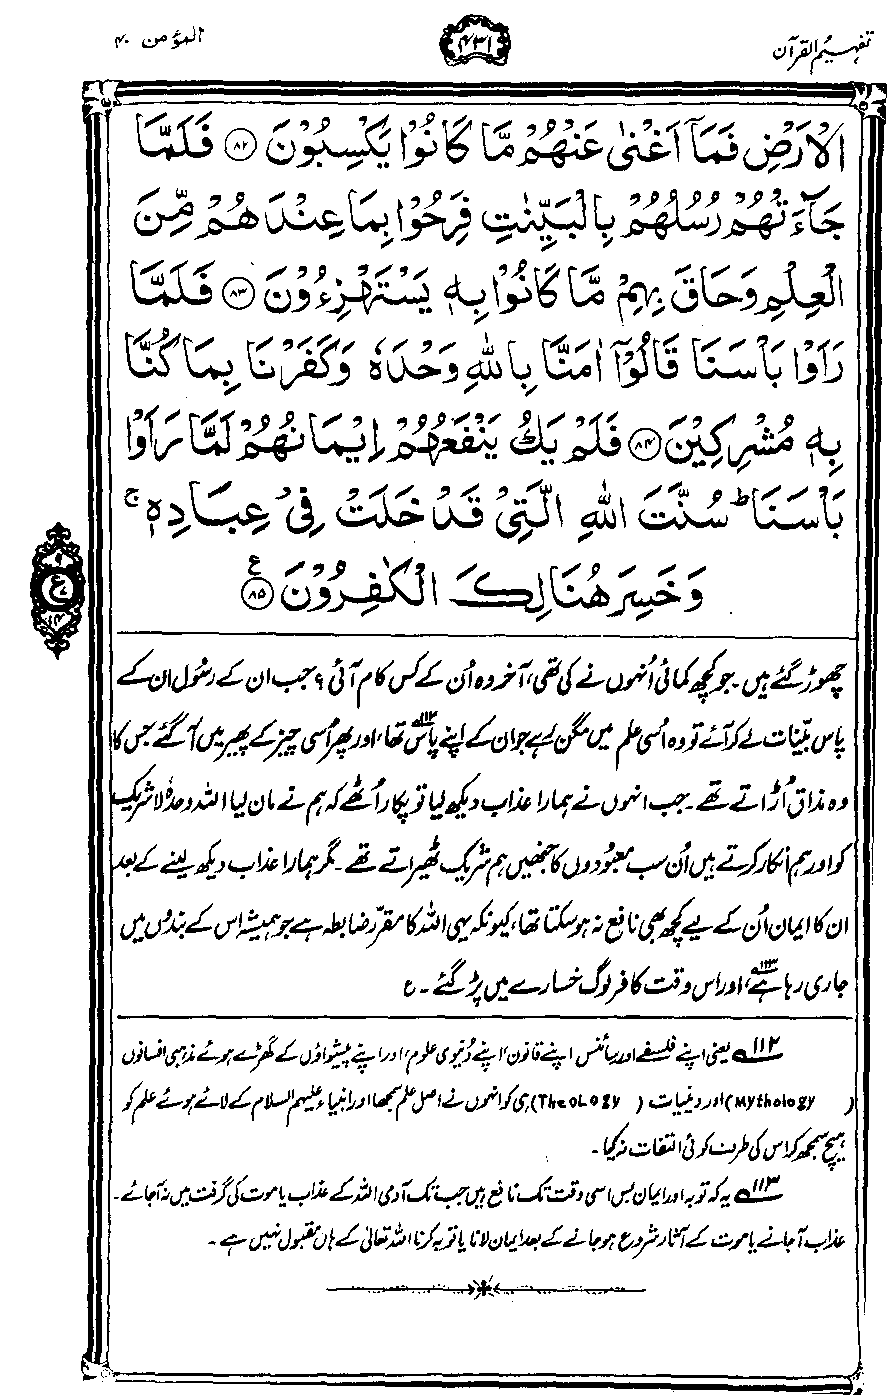 تفہیم القرآن
۴۳۱
المؤمن ۴۰
الْاَرْضِ فَمَآ اَغْنٰى عَنْهُمْ مَّا كَانُوْا يَكْسِبُوْنَ ﴿۸۲﴾ فَلَمَّا
جَآءَتْهُمْ رُسُلُهُمْ بِالْبَيِّنٰتِ فَرِحُوْا بِمَا عِنْدَهُمْ مِّنَ
الْعِلْمِ وَحَاقَ بِهِمْ مَّا كَانُوْا بِهٖ يَسْتَهْزِءُوْنَ ﴿۸۳﴾ فَلَمَّا
رَاَوْا بَاْسَنَا قَالُوْٓا اٰمَنَّا بِاللّٰهِ وَحْدَهٗ وَكَفَرْنَا بِمَا كُنَّا
بِهٖ مُشْرِكِيْنَ ﴿۸۴﴾ فَلَمْ يَكُ يَنْفَعُهُمْ اِيْمَانُهُمْ لَمَّا رَاَوْا
بَاْسَنَا ؕ سُنَّتَ اللّٰهِ الَّتِيْ قَدْ خَلَتْ فِيْ عِبَادِهٖ ۚ
وَخَسِرَ هُنَالِكَ الْكٰفِرُوْنَ ﴿۸۵﴾ ع
۹
ع
۷
۱۴
چھوڑ گئے ہیں۔ جو کچھ کمائی اُنہوں نے کی تھی، آخر وہ اُن کے کس کام آئی؟ جب ان کے رسُول ان کے
پاس بیّنات لے کر آئے تو وہ اُسی علم میں مگن رہے جو ان کے اپنے پاس تھا،۱۱۲ اور پھر اُسی چیز کے پھیر میں آگئے جس کا
وہ مذاق اُڑاتے تھے۔ جب انہوں نے ہمارا عذاب دیکھ لیا تو پکار اُٹھے کہ ہم نے مان لیا اللہ وحدہٗ لاشریک
کو اور ہم انکار کرتے ہیں اُن سب معبُودوں کا جنھیں ہم شریک ٹھیراتے تھے۔ مگر ہمارا عذاب دیکھ لینے کے بعد
ان کا ایمان اُن کے لیے کچھ بھی نافع نہ ہو سکتا تھا، کیونکہ یہی اللہ کا مقرّر ضابطہ ہے جو ہمیشہ اس کے بندوں میں
جاری رہا ہے،۱۱۳ اور اس وقت کافر لوگ خسارے میں پڑ گئے۔ ع
۱۱۲ یعنی اپنے فلسفے اور سائنس، اپنے قانون، اپنے دُنیوی علوم، اور اپنے پیشواؤں کے گھڑے ہوئے مذہبی افسانوں
(Mythology) اور دینیات (Theology) ہی کو انہوں نے اصل علم سمجھا اور انبیاء علیہم السلام کے لائے ہوئے علم کو
ہیچ سمجھ کر اس کی طرف کوئی التفات نہ کیا۔
۱۱۳ یہ کہ توبہ اور ایمان بس اسی وقت تک نافع ہیں جب تک آدمی اللہ کے عذاب یا موت کی گرفت میں نہ آجائے۔
عذاب آجانے یا موت کے آثار شروع ہو جانے کے بعد ایمان لانا یا توبہ کرنا اللہ تعالیٰ کے ہاں مقبول نہیں ہے۔